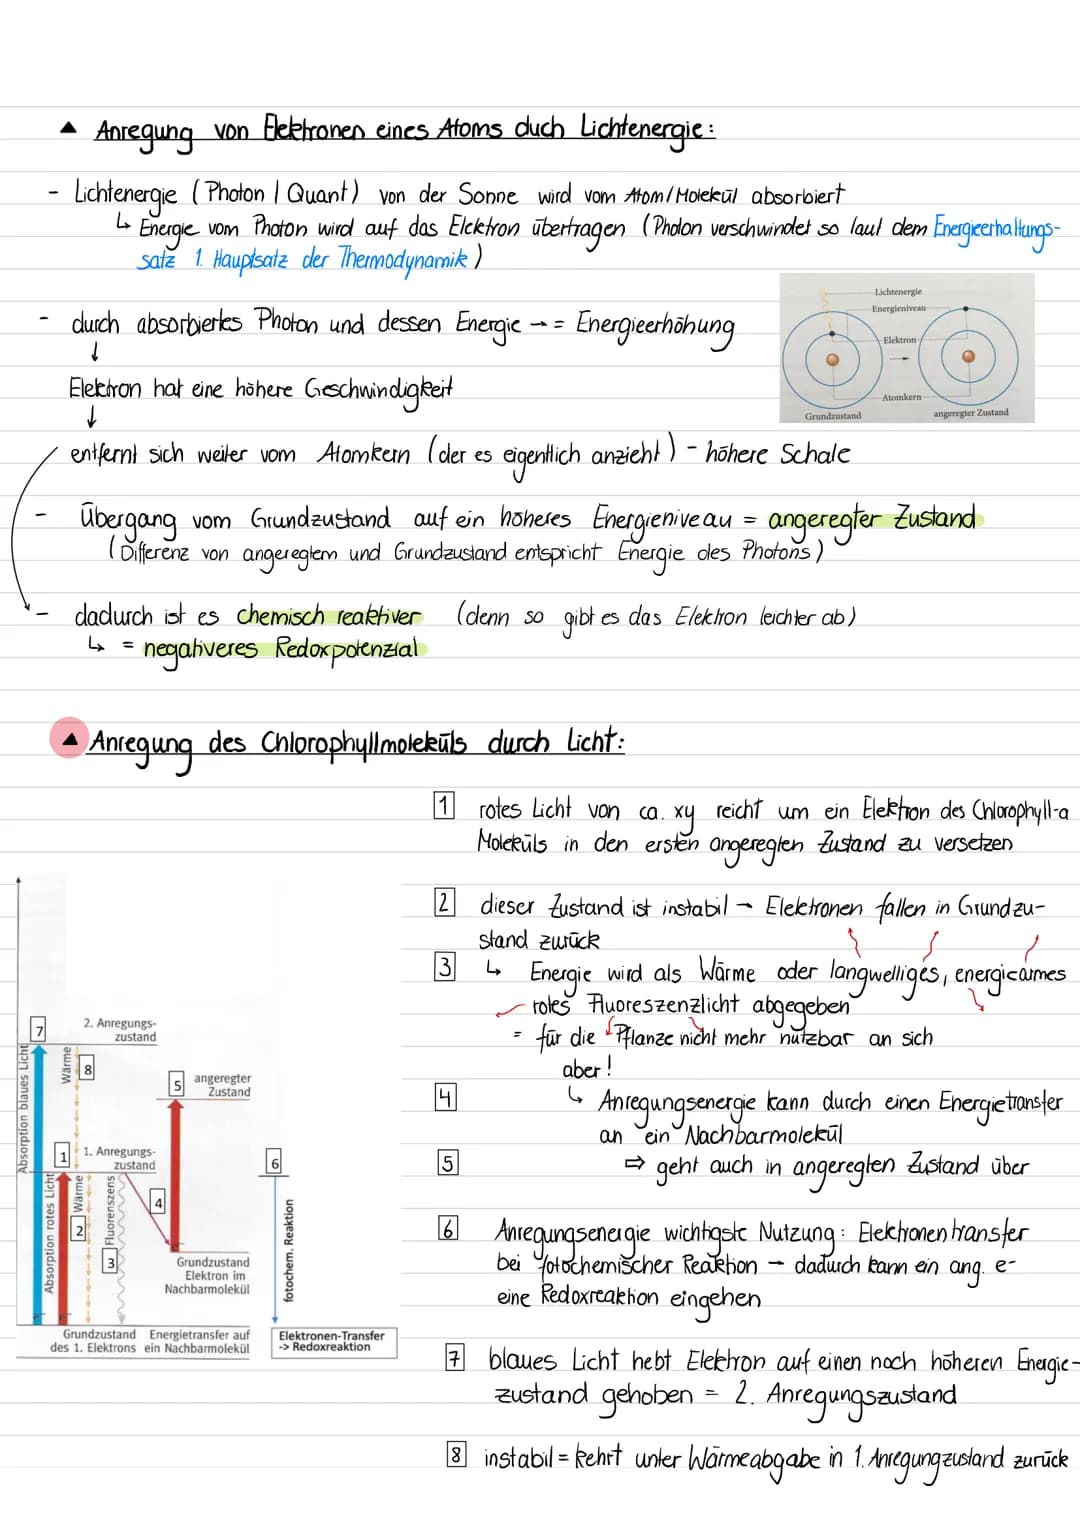 ▲ Anregung von Elektronen eines Atoms duch Lichtenergie:
- Lichtenergie (Photon | Quant) von der Sonne wird vom Atom/Molekül absorbiert
↳ Energie vom Photon wird auf das Elektron übertragen (Photon verschwindet so laut dem Energieerhaltungs-
satz 1. Hauptsatz der Thermodynamik)
- durch absorbiertes Photon und dessen Energie → = Energieerhöhung
↓
Elektron hat eine höhere Geschwindigkeit
↓
entfernt sich weiter vom Atomkern (der es eigentlich anzieht) - höhere Schale
Lichtenergie
Energieniveau
Elektron
→
Atomkern
Grundzustand
angeregter Zustand
- Übergang vom Grundzustand auf ein höheres Energieniveau = angeregter Zustand
(Differenz von angeregtem und Grundzustand entspricht Energie des Photons)
- dadurch ist es chemisch reaktiver (denn so gibt es das Elektron leichter ab)
↳ = negativeres Redoxpotenzial
▲ Anregung des Chlorophyllmoleküls durch Licht:
1 rotes Licht von ca. xy reicht um ein Elektron des Chlorophyll-a
Moleküls in den ersten angeregten Zustand zu versetzen
2 dieser Zustand ist instabil → Elektronen fallen in Grundzu-
stand zurück
3 ↳ Energie wird als Wärme oder langwelliges, energiearmes
rotes Fluoreszenzlicht abgegeben
= für die Pflanze nicht mehr nutzbar an sich
aber!
4 ↳ Anregungsenergie kann durch einen Energietransfer
an ein Nachbarmolekül
5 ⇒ geht auch in angeregten Zustand über
6 Anregungsenergie wichtigste Nutzung: Elektronentransfer
bei fotochemischer Reaktion → dadurch kann ein ang. e-
eine Redoxreaktion eingehen
7 blaues Licht hebt Elektron auf einen noch höheren Energie-
zustand gehoben = 2. Anregungszustand
8 instabil = kehrt unter Wärmeabgabe in 1. Anregungzustand zurück
7
2. Anregungs-
zustand
Absorption blaues Licht
Wärme
8
5
angeregter
Zustand
1
1. Anregungs-
zustand
6
Absorption rotes Licht
2
Wärme
3
Fluorenszens
4
Grundzustand
Elektron im
Nachbarmolekül
fotochem. Reaktion
Grundzustand
des 1. Elektrons
Energietransfer auf
ein Nachbarmolekül
Elektronen-Transfer
-> Redoxreaktion